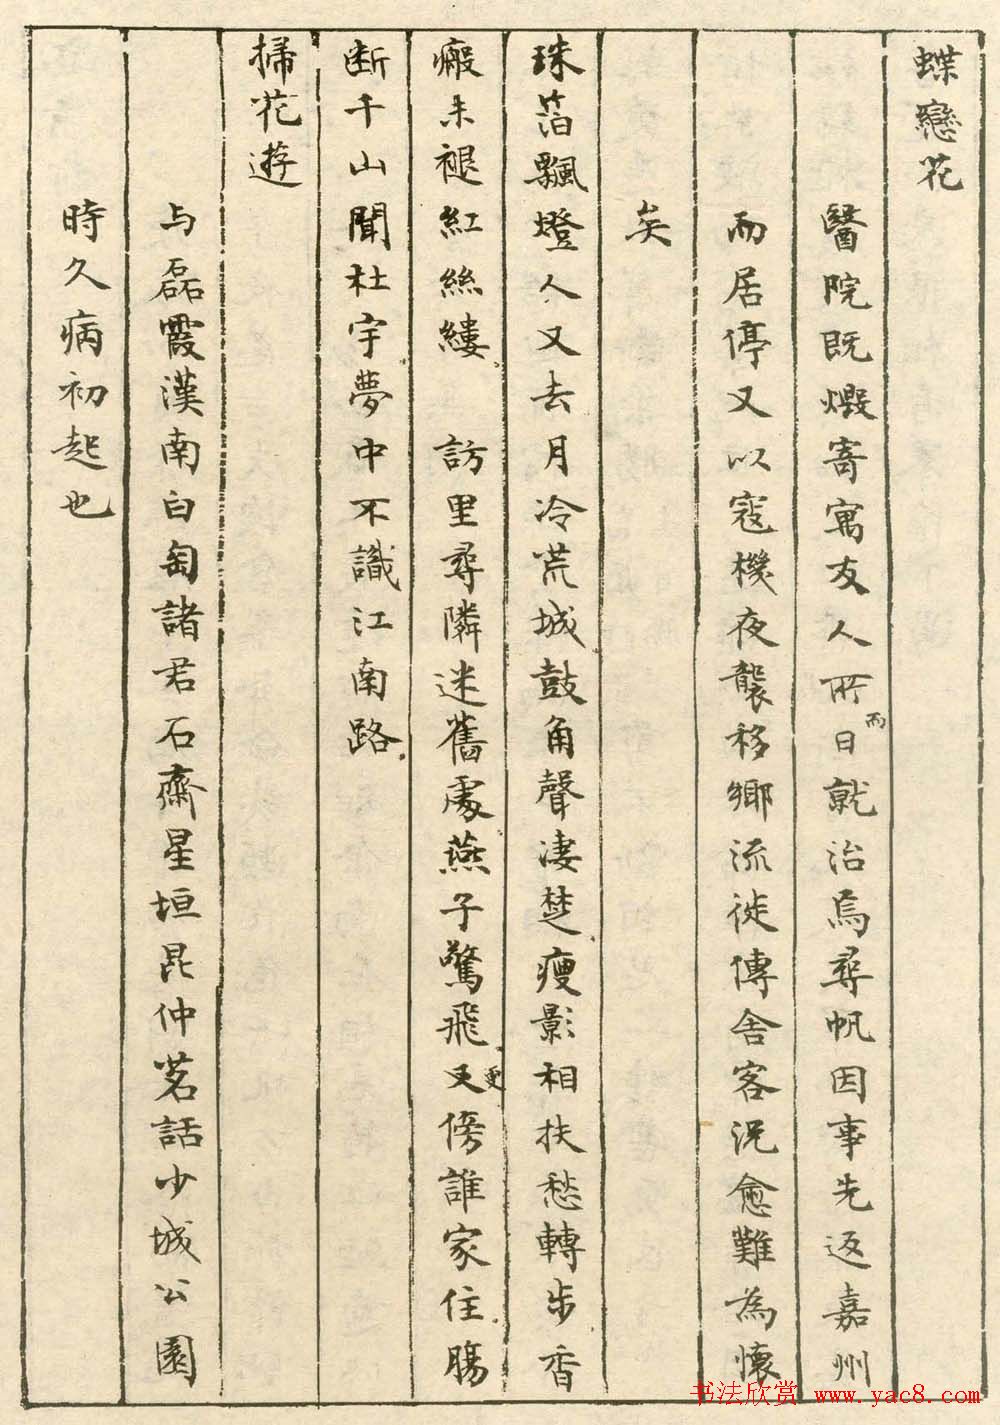 蝶戀花
醫院既燬寄寓友人所而日就治焉尋帆因事先返嘉州
而居停又以寇機夜襲移鄉流徙傳舍客況愈難為懷
矣
珠箔飄燈人又去月冷荒城鼓角聲淒楚瘦影相扶愁轉步香
瘢未褪紅絲縷 訪里尋隣迷舊處燕子驚飛又更傍誰家住腸
断千山聞杜宇夢中不識江南路
掃花遊
与磊霞漢南白匋諸君石齋星垣昆仲茗話少城公園
時久病初起也
书法欣赏 www.yac8.com